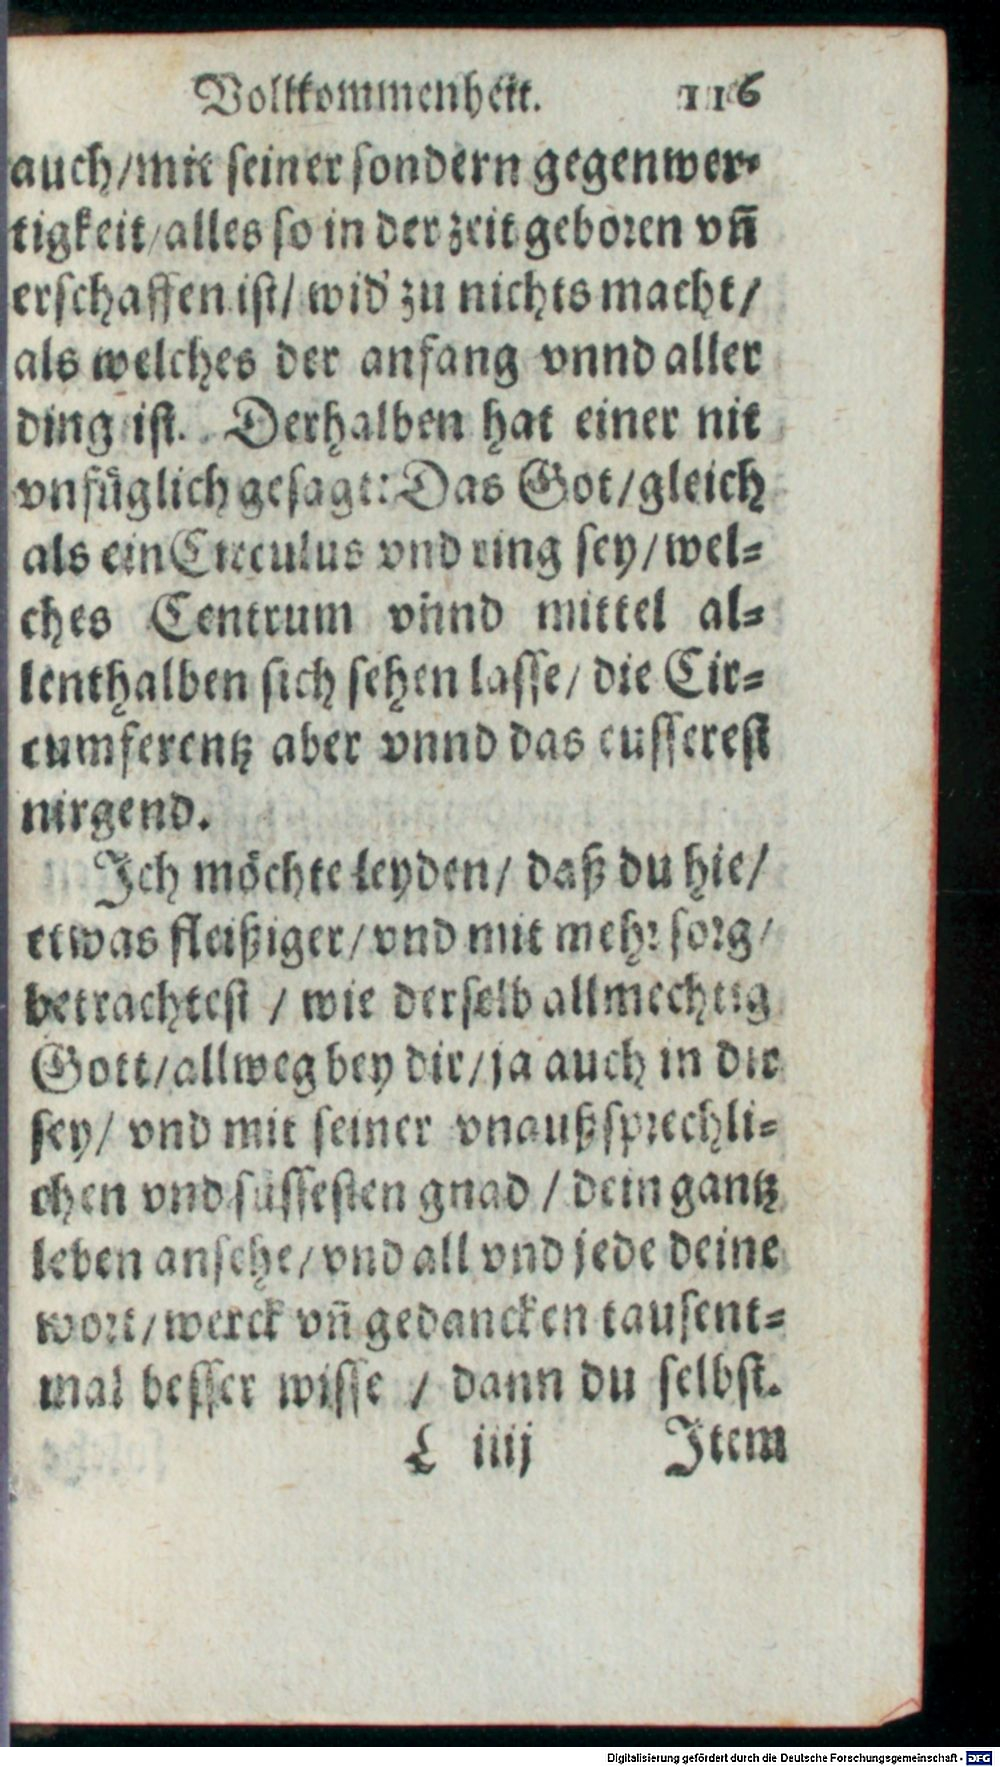 Vollkommenheit. 116
auch/mit seiner sondern gegenwer-
tigkeit/alles so in der zeit geboren vñ
erschaffen ist/ wid' zu nichts macht/
als welches der anfang vnnd aller
ding ist. Derhalben hat einer nit
vnfüglich gesagt: Das Got/gleich
als ein Circulus vnd ring sey/wel-
ches Centrum vnnd mittel al-
lenthalben sich sehen lasse/ die Cir-
cumferentz aber vnnd das eusserest
nirgend.
Ich möchte leyden/ daß du hie/
etwas fleißiger/vnd mit mehr sorg/
betrachtest / wie derselb allmechtig
Gott/allweg bey dir/ja auch in dir
sey/ vnd mit seiner vnaußsprechli-
chen vnd süssesten gnad / dein gantz
leben ansehe/vnd all vnd jede deine
wort/werck vñ gedancken tausent-
mal besser wisse / dann du selbst.
L iiij Item
Digitalisierung gefördert durch die Deutsche Forschungsgemeinschaft - DFG